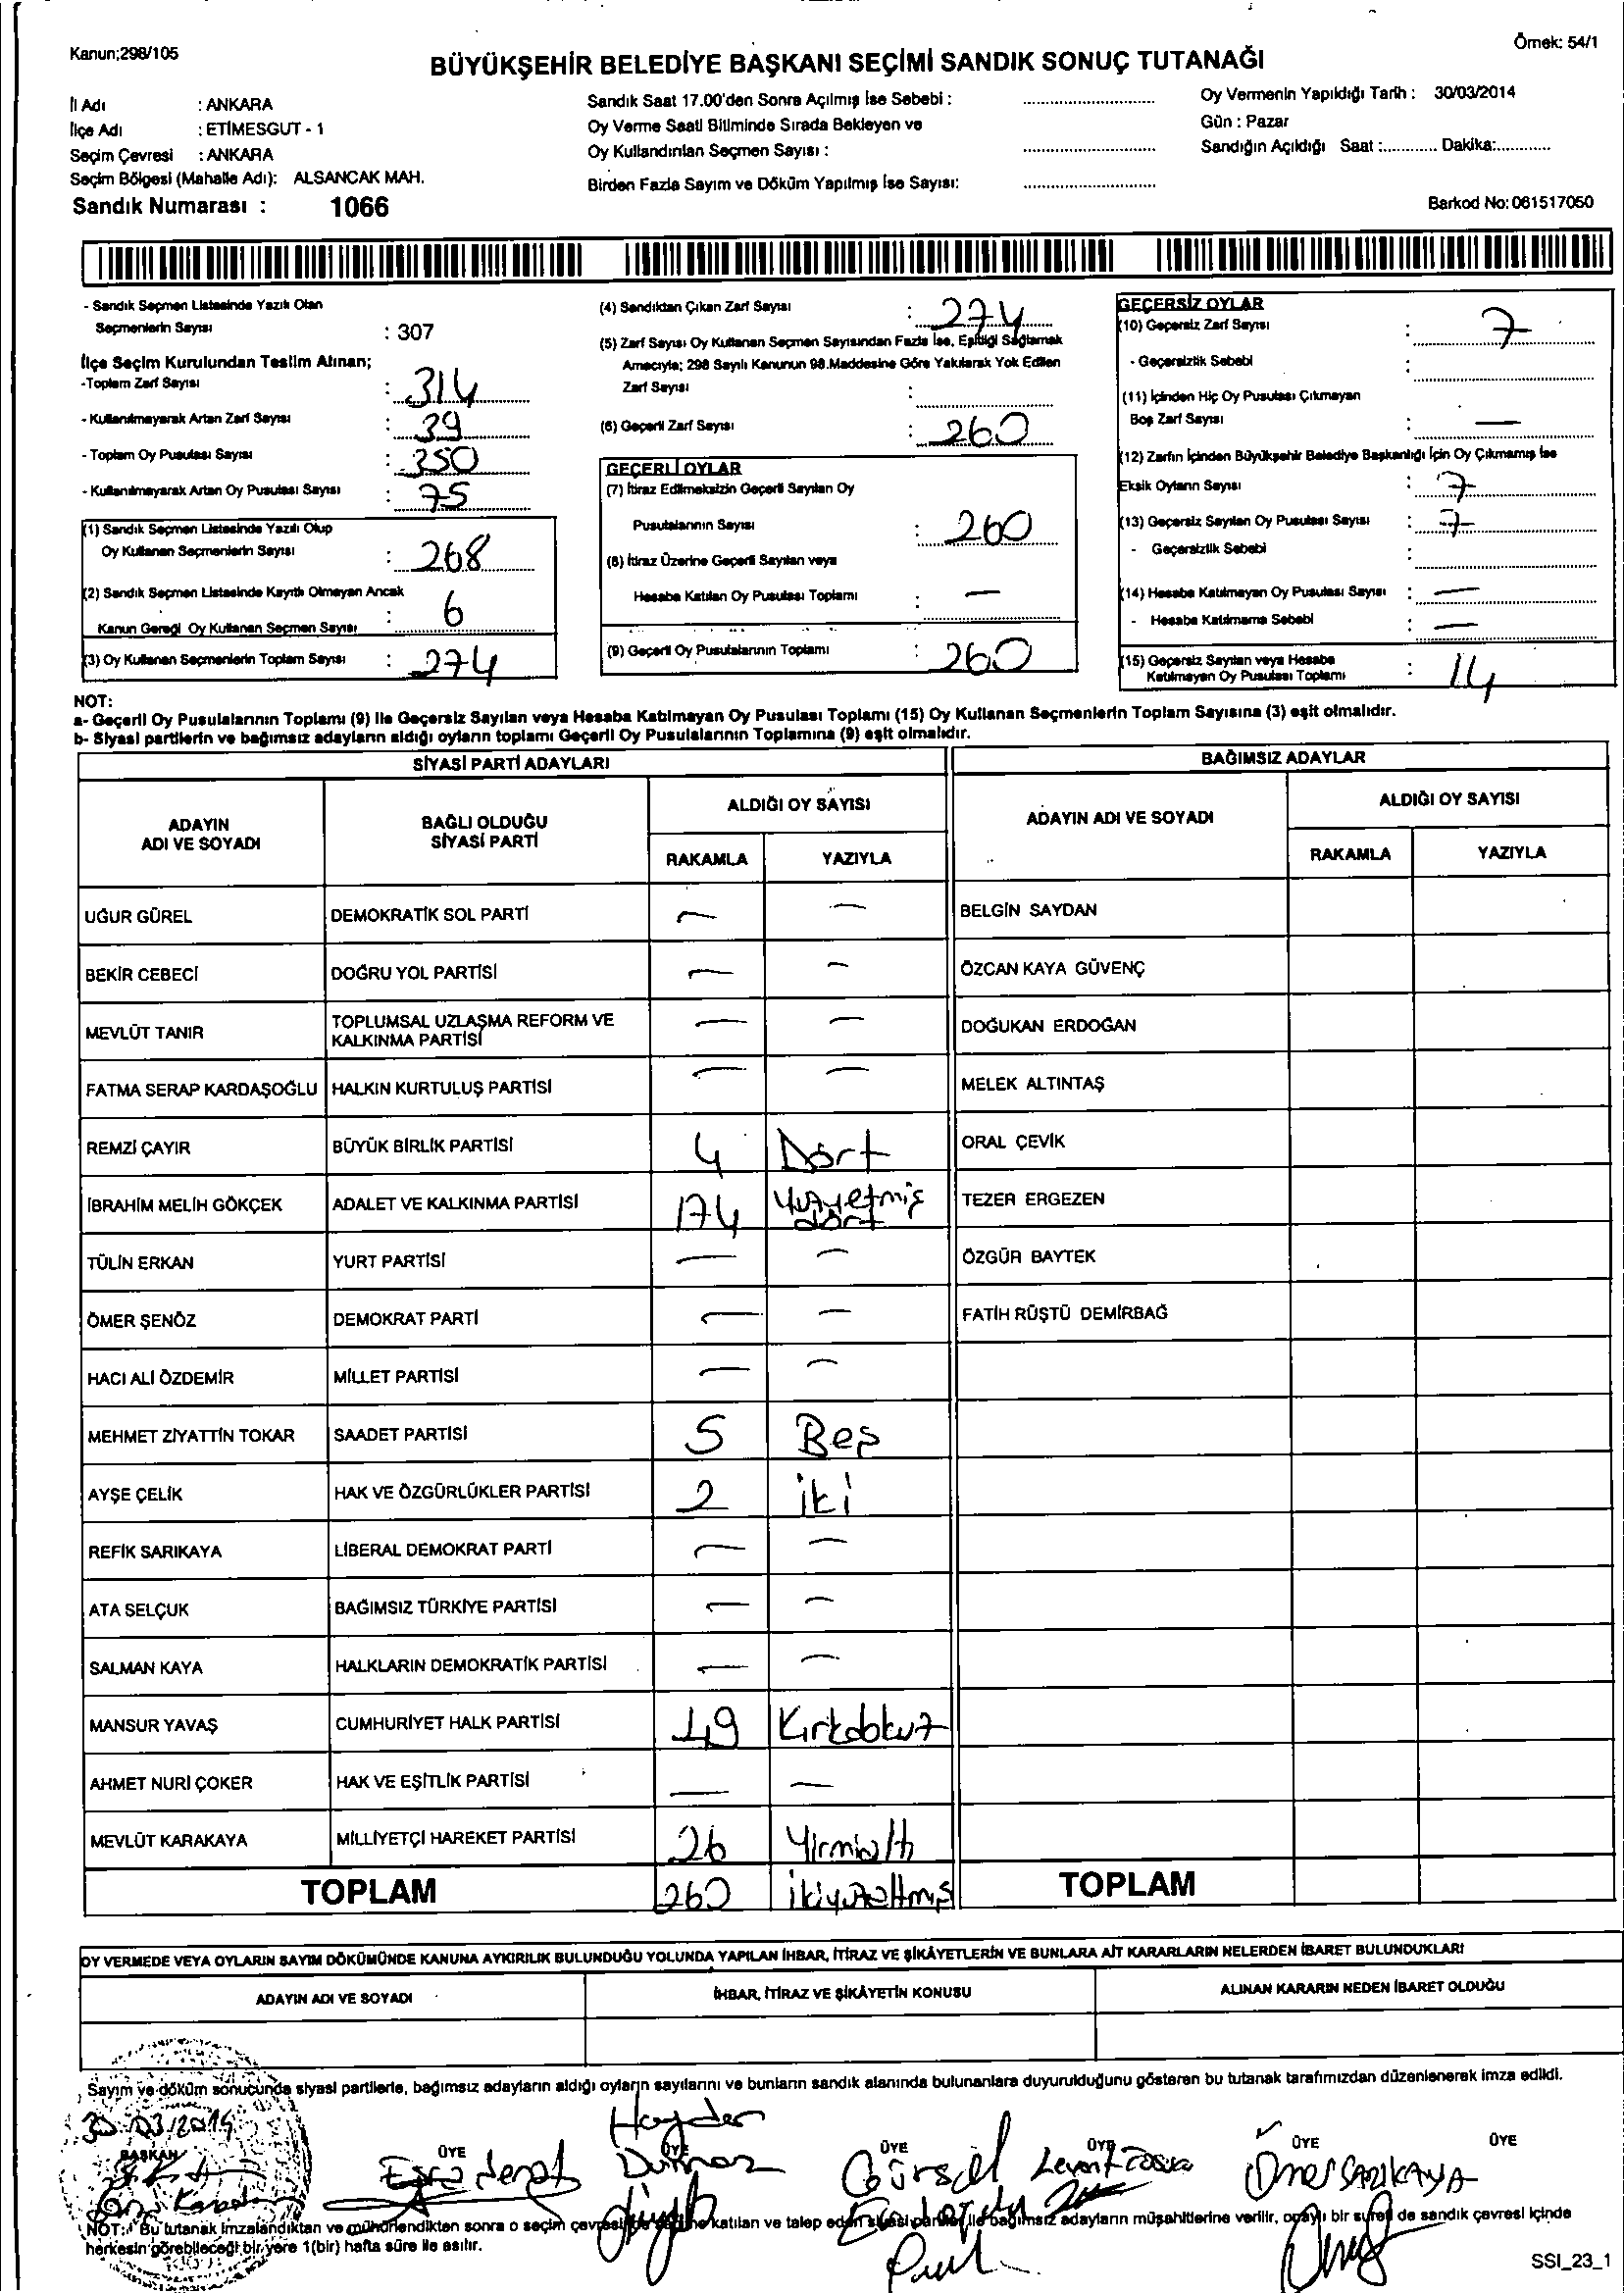 Kanun;298/105
Örnek: 54/1
BÜYÜKŞEHİR BELEDİYE BAŞKANI SEÇİMİ SANDIK SONUÇ TUTANAĞI
İl Adı : ANKARA
İlçe Adı : ETİMESGUT - 1
Seçim Çevresi : ANKARA
Seçim Bölgesi (Mahalle Adı): ALSANCAK MAH.
Sandık Numarası : 1066
Sandık Saat 17.00'den Sonra Açılmış İse Sebebi :
Oy Verme Saati Bitiminde Sırada Bekleyen ve
Oy Kullandırılan Seçmen Sayısı :
Birden Fazla Sayım ve Döküm Yapılmış İse Sayısı:
Oy Vermenin Yapıldığı Tarih : 30/03/2014
Gün : Pazar
Sandığın Açıldığı Saat :............ Dakika:............
Barkod No:061517050
- Sandık Seçmen Listesinde Yazılı Olan
Seçmenlerin Sayısı : 307
İlçe Seçim Kurulundan Teslim Alınan;
-Toplam Zarf Sayısı : 314
- Kullanılmayarak Artan Zarf Sayısı : 39
- Toplam Oy Pusulası Sayısı : 350
- Kullanılmayarak Artan Oy Pusulası Sayısı : 75
(1) Sandık Seçmen Listesinde Yazılı Olup
Oy Kullanan Seçmenlerin Sayısı : 268
(2) Sandık Seçmen Listesinde Kayıtlı Olmayan Ancak
Kanun Gereği Oy Kullanan Seçmen Sayısı : 6
(3) Oy Kullanan Seçmenlerin Toplam Sayısı : 274
(4) Sandıktan Çıkan Zarf Sayısı : 274
(5) Zarf Sayısı Oy Kullanan Seçmen Sayısından Fazla İse, Eşitliği Sağlamak
Amacıyla; 298 Sayılı Kanunun 98.Maddesine Göre Yakılarak Yok Edilen
Zarf Sayısı :
(6) Geçerli Zarf Sayısı : 260
GEÇERLİ OYLAR
(7) İtiraz Edilmeksizin Geçerli Sayılan Oy
Pusulalarının Sayısı : 260
(8) İtiraz Üzerine Geçerli Sayılan veya
Hesaba Katılan Oy Pusulası Toplamı : —
(9) Geçerli Oy Pusulalarının Toplamı : 260
GEÇERSİZ OYLAR
(10) Geçersiz Zarf Sayısı : 7
- Geçersizlik Sebebi :
(11) İçinden Hiç Oy Pusulası Çıkmayan
Boş Zarf Sayısı : —
(12) Zarfın İçinden Büyükşehir Belediye Başkanlığı İçin Oy Çıkmamış İse
Eksik Oyların Sayısı : 7
(13) Geçersiz Sayılan Oy Pusulası Sayısı : 7
- Geçersizlik Sebebi :
(14) Hesaba Katılmayan Oy Pusulası Sayısı : —
- Hesaba Katılmama Sebebi : —
(15) Geçersiz Sayılan veya Hesaba
Katılmayan Oy Pusulası Toplamı : 14
NOT:
a- Geçerli Oy Pusulalarının Toplamı (9) ile Geçersiz Sayılan veya Hesaba Katılmayan Oy Pusulası Toplamı (15) Oy Kullanan Seçmenlerin Toplam Sayısına (3) eşit olmalıdır.
b- Siyasi partilerin ve bağımsız adayların aldığı oyların toplamı Geçerli Oy Pusulalarının Toplamına (9) eşit olmalıdır.
SİYASİ PARTİ ADAYLARI
BAĞIMSIZ ADAYLAR
ADAYIN
ADI VE SOYADI
BAĞLI OLDUĞU
SİYASİ PARTİ
ALDIĞI OY SAYISI
RAKAMLA YAZIYLA
ADAYIN ADI VE SOYADI
ALDIĞI OY SAYISI
RAKAMLA YAZIYLA
UĞUR GÜREL DEMOKRATİK SOL PARTİ — — BELGİN SAYDAN
BEKİR CEBECİ DOĞRU YOL PARTİSİ — — ÖZCAN KAYA GÜVENÇ
MEVLÜT TANIR TOPLUMSAL UZLAŞMA REFORM VE
KALKINMA PARTİSİ — — DOĞUKAN ERDOĞAN
FATMA SERAP KARDAŞOĞLU HALKIN KURTULUŞ PARTİSİ — — MELEK ALTINTAŞ
REMZİ ÇAYIR BÜYÜK BİRLİK PARTİSİ 4 Dört ORAL ÇEVİK
İBRAHİM MELİH GÖKÇEK ADALET VE KALKINMA PARTİSİ 174 Yüzyetmiş
dört TEZER ERGEZEN
TÜLİN ERKAN YURT PARTİSİ — — ÖZGÜR BAYTEK
ÖMER ŞENÖZ DEMOKRAT PARTİ — — FATİH RÜŞTÜ DEMİRBAĞ
HACI ALİ ÖZDEMİR MİLLET PARTİSİ — —
MEHMET ZİYATTİN TOKAR SAADET PARTİSİ 5 Beş
AYŞE ÇELİK HAK VE ÖZGÜRLÜKLER PARTİSİ 2 iki
REFİK SARIKAYA LİBERAL DEMOKRAT PARTİ — —
ATA SELÇUK BAĞIMSIZ TÜRKİYE PARTİSİ — —
SALMAN KAYA HALKLARIN DEMOKRATİK PARTİSİ — —
MANSUR YAVAŞ CUMHURİYET HALK PARTİSİ 49 Kırkdokuz
AHMET NURİ ÇOKER HAK VE EŞİTLİK PARTİSİ — —
MEVLÜT KARAKAYA MİLLİYETÇİ HAREKET PARTİSİ 26 Yirmialtı
TOPLAM 260 ikiyüzaltmış TOPLAM
OY VERMEDE VEYA OYLARIN SAYIM DÖKÜMÜNDE KANUNA AYKIRILIK BULUNDUĞU YOLUNDA YAPILAN İHBAR, İTİRAZ VE ŞİKÂYETLERİN VE BUNLARA AİT KARARLARIN NELERDEN İBARET BULUNDUKLARI
ADAYIN ADI VE SOYADI İHBAR, İTİRAZ VE ŞİKÂYETİN KONUSU ALINAN KARARIN NEDEN İBARET OLDUĞU
Sayım ve döküm sonucunda siyasi partilerle, bağımsız adayların aldığı oyların sayılarını ve bunların sandık alanında bulunanlara duyurulduğunu gösteren bu tutanak tarafımızdan düzenlenerek imza edildi.
30.03/2014
BAŞKAN ÜYE ÜYE ÜYE ÜYE ÜYE ÜYE
Haydar
Gürsel Levent Ömer SARIKAYA
NOT: Bu tutanak imzalandıktan ve mühürlendikten sonra o seçim çevresinde seçime katılan ve talep eden siyasi partiler ile bağımsız adayların müşahitlerine verilir, onaylı bir sureti de sandık çevresi içinde
herkesin görebileceği bir yere 1(bir) hafta süre ile asılır.
SSI_23_1